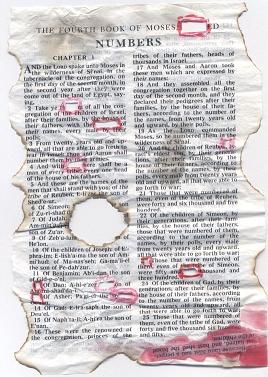 THE FOURTH BOOK OF MOSES, ED
NUMBERS
CHAPTER 1
AND the LORD spake unto Moses in
the wilderness of Si'nai, in
tabernacle of the congregation, on
the first day of the second month, in
the second year after they were
come out of the land of Egypt, say-
ing,
2 Take ye of all the con-
gregation of the children of Israel,
after their families, by
their fathers, with the number of
their names, every male
polls;
3 From twenty years old and
ward, all that are able to go forth to
war in Israel: thou and Aaron
number them by their armies.
4 And with
man of every tribe; every one
of the house of his fathers.
5 And these are the names of the
men that shall stand with you: of the
tribe of Reuben;
Shed'e-ur.
6 Of Simeon;
of Zu-ri-shad
7 Of Judah;
Am-min'a-dab
9 Of Zeb'u-lun
Helon.
10 Of the children of Joseph: of E-
phra-im; E-lish'a-ma the son of Am-
mi-hud: of Ma-nas'seh; Ga-ma'li-el
the son of Pe-dah'zur.
11 Of Benjamin; Ab'i-dan the son
of Gid-e-o'ni.
12 Of Dan; A-hi-e'zer
13 Of Asher; Pa'gi-el the
14 Of Gad; E-li'a-saph the son of
Deu'el.
15 Of Naph'ta-li; A-hi'ra the son of
E'nan.
16 These were the renowned of
the congregation, princes
tribes of their fathers, heads of
thousands in Israel.
17 And Moses and Aaron took
these men which are expressed by
their names:
18 And they assembled all the
congregation together on the first day
of the second month, and they
declared their pedigrees after their
families, by the house of their fa-
thers, according to the number of
the names, from twenty years old
and upward, by their polls.
19 As the LORD commanded
Moses, so he numbered them in the
wilderness of Si'nai.
20 And the children of Reuben,
by their
tions, after their families, by the
house of their fathers, according to
the number of the names, by their
polls, every male from twenty years
old and upward, all that were able to
go forth to war;
21 Those that were numbered of
them, even of the tribe of Reuben,
were forty and six thousand and five
hundred.
22 Of the children of Simeon, by
their generations, after their fami-
lies, by the house of their fathers,
those that were numbered of them,
according to the number of the
names, by their polls, every male
from twenty years old and upward,
all that were able to go forth to war;
23 Those that were numbered of
even of the tribe of Simeon,
were fifty and thousand and
24 Of the children of Gad, by their
generations, after their families, by
the house of their fathers, according
to the number of the names, from
twenty years old and upward, all
that were able to go forth to war;
25 Those that were numbered of
them, even of the tribe of Gad, were
forty and five thousand six hundred
and fifty.